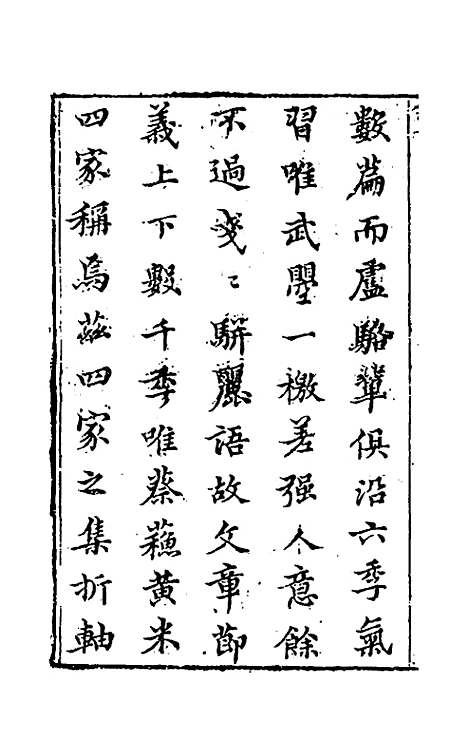 數篇而盧駱輩俱沿六季氣
習唯武曌一檄差强人意餘
不過戔〻駢麗語故文章節
義上下數千季唯蔡蘓黃米
四家稱焉茲四家之集折軸